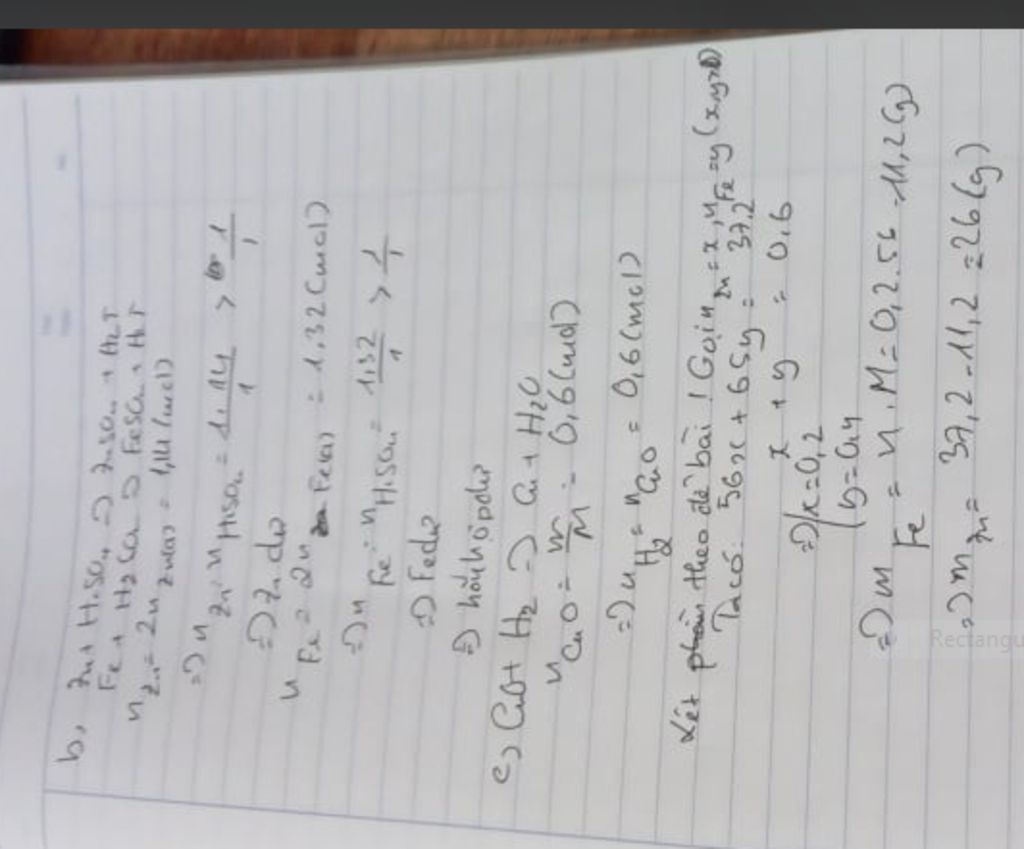 b, Zn + H₂SO₄ → ZnSO₄ + H₂↑
Fe + H₂SO₄ → FeSO₄ + H₂↑
n Zn = 2n Zn(a) = 1,14 (mol)
=> n Zn : n H₂SO₄ = 1,14/1 > 1/1
=> Zn dư
n Fe = 2n Fe(a) = 1,32 (mol)
=> n Fe : n H₂SO₄ = 1,32/1 > 1/1
=> Fe dư
=> hỗn hợp dư
c) CuO + H₂ → Cu + H₂O
n CuO = m/M = 0,6 (mol)
=> n H₂ = n CuO = 0,6 (mol)
Xét phần theo đề bài ! Gọi n Zn = x, n Fe = y (x,y>0)
Ta có: 56x + 65y = 37,2
x + y = 0,6
=> x = 0,2
y = 0,4
=> m Fe = n . M = 0,2.56 = 11,2 (g)
=> m Zn = 37,2 - 11,2 = 26 (g)
Rectangu